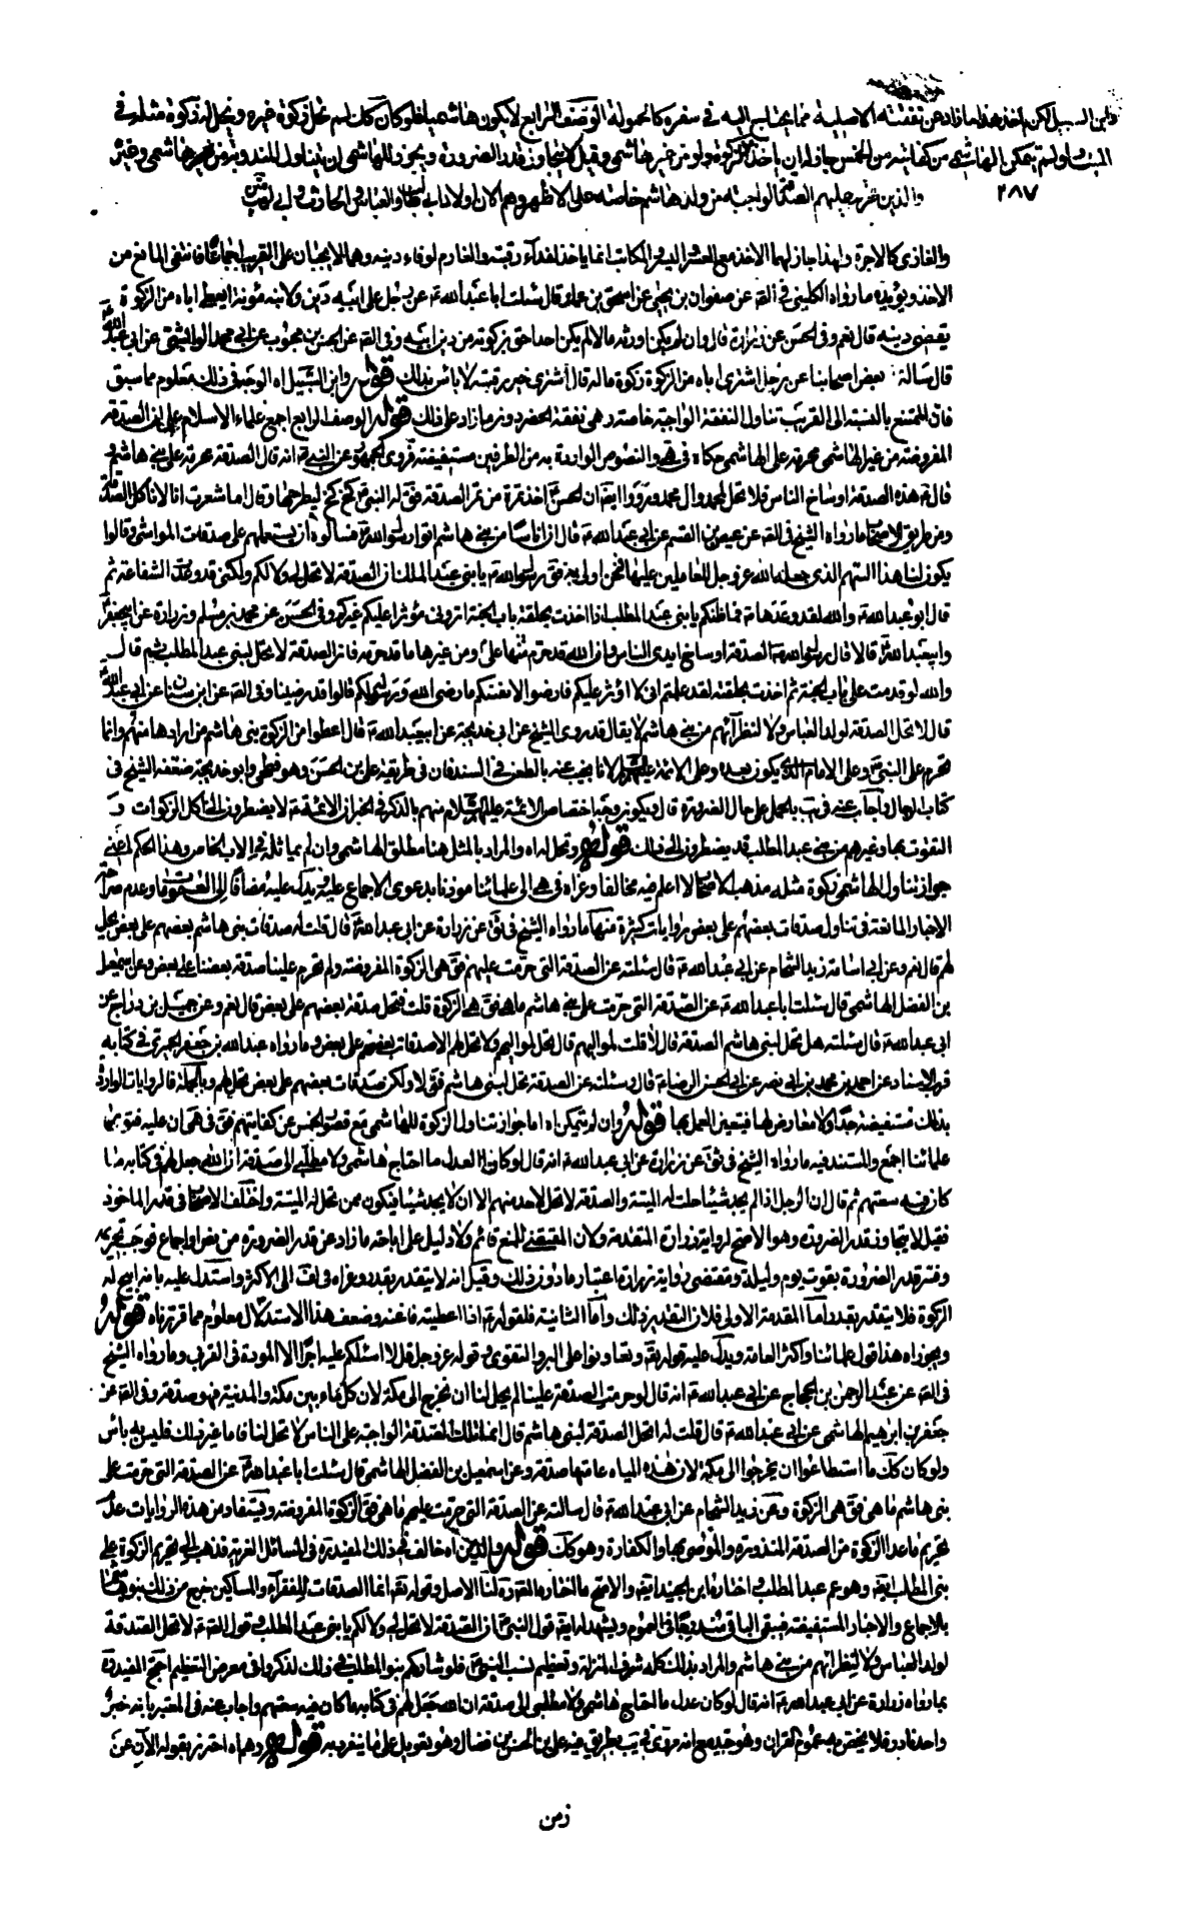 وابن السبيل لكن يأخذ هذا ما زاد عن نفقته الاصلية مما يحتاج اليه في سفره كالحمولة الوصف الرابع لا يكون هاشميا فلو كان كك لم تحل له زكوة غيره ويحل له زكوة مثله في
النسب ولو لم يتمكن الهاشمي من كفايته من الخمس جاز له ان يأخذ الزكوة ولو من غير هاشمي وقيل لا يتجاوز قدر الضرورة ويجوز للهاشمي ان يتناول المندوبة من غير هاشمي وغيره
والذين يحرم عليهم الصدقة الواجبة من ولد هاشم خاصة على الاظهر وهم الان اولاد ابي طالب والعباس والحارث وابي لهب
٢٨٧
والغازي كالاجرة ولهذا جاز لهما الاخذ مع الغنى والمكاتب انما ياخذ لفداء رقبته والغارم لوفاء دينه وهما لا يجبان على القريب اجماعا فانتفى المانع من
الاخذ ويؤيده ما رواه الكليني في عن صفوان بن يحيى عن اسحق بن عمار قال سئلت ابا عبدالله ع عن رجل على ابيه دين ولابنه مؤنة ايعطي اباه من الزكوة
يقضي دينه قال نعم وفي الحسن عن زرارة قال وان لم يكن اورثه مالا لم يكن احد احق بزكوته من دين ابيه وفي عن الحسن بن محبوب عن ابي محمد الوابشي عن ابي عبدالله
قال ساله بعض اصحابنا عن رجل اشترى اباه من الزكوة زكوة ماله قال اشترى خير رقبته لا باس بذلك قوله وابن السبيل اه الوجه في ذلك معلوم مما سبق
فان الممتنع بالنسبة الى القريب تناول النفقة الواجبة خاصة وهي نفقة الحضر دون ما زاد على ذلك قوله الوصف الرابع اجمع علماء الاسلام على ان الصدقة
المفروضة من غير الهاشمي محرمة على الهاشمي حكاه في هي والنصوص الواردة به من الطرفين مستفيضة فروى الجمهور عن النبي انه قال الصدقة محرمة على بني هاشم و
قال ان هذه الصدقة اوساخ الناس فلا تحل لمحمد وال محمد ورووا ايضا ان الحسن اخذ تمرة من تمر الصدقة فق له النبي كخ كخ ليطرحها وقال اما شعرت انا لا ناكل الصدقة
ومن طريق الاصحاب ما رواه الشيخ في عن عيص بن القسم عن ابي عبدالله ع قال ان اناسا من بني هاشم اتوا رسول الله فسالوه ان يستعملهم على صدقات المواشي وقالوا
يكون لنا هذا السهم الذي جعله الله عز وجل للعاملين عليها فنحن اولى به فق رسول الله يا بني عبد المطلب ان الصدقة لا تحل لي ولا لكم ولكني قد وعدت الشفاعة ثم
قال ابو عبدالله ع والله لقد وعدها فما ظنكم يا بني عبد المطلب اذا اخذت بحلقة باب الجنة اتروني مؤثرا عليكم غيركم وفي الحسن عن محمد بن مسلم وزرارة عن ابي جعفر
وابي عبدالله قالا قال رسول الله الصدقة اوساخ ايدي الناس وان الله قد حرم علي منها ومن غيرها ما قد حرمه فان الصدقة لا تحل لبني عبد المطلب ثم قال
والله لو قدمت على باب الجنة ثم اخذت بحلقته لقد علمتم اني لا اؤثر عليكم فارضوا لانفسكم ما رضي الله ورسوله لكم قالوا قد رضينا وفي عن ابن سنان عن ابي عبدالله
قال لا تحل الصدقة لولد العباس ولا لنظرائهم من بني هاشم لا يقال قد روى الشيخ عن ابي خديجة عن ابي عبدالله قال اعطوا من الزكوة بني هاشم من ارادها منهم وانما
تحرم على النبي وعلى الامام الذي يكون بعده وعلى الائمة لانا نجيب عنه بالطعن في السند فان في طريقه علي بن الحسن وهو فطحي وابو خديجة ضعفه الشيخ في
كتاب الرجال واجاب عنه في يب بالحمل على حال الضرورة قال ويكون وجه اختصاص الائمة منهم بالذكر في الخبر ان الائمة لا يضطرون الى اكل الزكوات و
التقوت بها وغيرهم من بني عبد المطلب قد يضطرون الى ذلك قوله وتحل له اه والمراد بالمثل هنا مطلق الهاشمي وان لم يماثله في الاب الخاص وهذا الحكم اعني
جواز تناول الهاشمي زكوة مثله مذهب الاصحاب لا اعلم فيه مخالفا وعزاه في هي الى علمائنا موذنا بدعوى الاجماع عليه ويدل عليه مضافا الى العمومات وعدم صراحة
الاخبار المانعة في تناول صدقات بعضهم على بعض روايات كثيرة منها ما رواه الشيخ في ثق عن زرارة عن ابي عبدالله قال قلت له صدقات بني هاشم بعضهم على بعض تحل
لهم قال نعم وعن ابي اسامة زيد الشحام عن ابي عبدالله ع قال سئلته عن الصدقة التي حرمت عليهم فق هي الزكوة المفروضة ولم تحرم علينا صدقة بعضنا على بعض وعن اسمعيل
بن الفضل الهاشمي قال سئلت ابا عبدالله ع عن الصدقة التي حرمت على بني هاشم ما هي فق هي الزكوة قلت فتحل صدقة بعضهم على بعض قال نعم وعن جميل بن دراج عن
ابي عبدالله قال سئلته هل تحل لبني هاشم الصدقة قال لا قلت لمواليهم قال تحل لمواليهم ولا تحل لهم الا صدقات بعضهم على بعض وما رواه عبد الله بن جعفر الحميري في كتابه
قرب الاسناد عن احمد بن محمد بن ابي نصر عن ابي الحسن الرضا ع قال وسئلته عن الصدقة تحل لبني هاشم فق لا ولكن صدقات بعضهم على بعض تحل لهم وبالجملة فالروايات الواردة
بذلك مستفيضة جدا ولا معارض لها فيتعين العمل بها قوله وان لم يتمكن اه اما جواز تناول الزكوة للهاشمي مع قصور الخمس عن كفايتهم فق في هي ان عليه فتوى
علمائنا اجمع والمستند فيه ما رواه الشيخ في ثق عن زرارة عن ابي عبدالله ع انه قال لو كان العدل ما احتاج هاشمي ولا مطلبي الى صدقة ان الله جعل لهم في كتابه ما
كان فيه سعتهم ثم قال ان الرجل اذا لم يجد شيئا حلت له الميتة والصدقة لا تحل لاحد منهم الا ان لا يجد شيئا فيكون ممن تحل له الميتة واختلف الاصحاب في قدر الماخوذ
فقيل لا يتجاوز قدر الضرورة وهو الاصح لرواية زرارة المتقدمة ولان المقتضي للمنع قائم ولا دليل على اباحة ما زاد عن قدر الضرورة من نص او اجماع فوجب تحريمه
وفسر قدر الضرورة بقوت يوم وليلة ومقتضى رواية زرارة اعتبار ما دون ذلك وقيل انه لا يتقدر بقدر وعزاه في لف الى الاكثر واستدل عليه بانه ابيح له
الزكوة فلا يتقدر بقدر اما المقدمة الاولى فلان التقدير ذلك واما الثانية فلقوله ع اذا اعطيته فاغنه وضعف هذا الاستدلال معلوم مما قررناه قوله
ويجوز اه هذا قول علمائنا واكثر العامة ويدل عليه قوله تع وتعاونوا على البر والتقوى وقوله عز وجل قل لا اسئلكم عليه اجرا الا المودة في القربى وما رواه الشيخ
في عن عبد الرحمن بن الحجاج عن ابي عبدالله ع انه قال لو حرمت الصدقة علينا لم يحل لنا ان نخرج الى مكة لان كل ماء بين مكة والمدينة فهو صدقة وفي عن
جعفر بن ابرهيم الهاشمي عن ابي عبدالله ع قال قلت له اتحل الصدقة لبني هاشم قال انما تلك الصدقة الواجبة على الناس لا تحل لنا فاما غير ذلك فليس به باس
ولو كان كك ما استطاعوا ان يخرجوا الى مكة لان هذه المياه عامتها صدقة وعن اسمعيل بن الفضل الهاشمي قال سئلت ابا عبدالله عن الصدقة التي حرمت على
بني هاشم ما هي فق هي الزكوة وعن زيد الشحام عن ابي عبدالله ع قال سالته عن الصدقة التي حرمت عليهم ما هي فق الزكوة المفروضة ويستفاد من هذه الروايات عدم
تحريم ما عدا الزكوة من الصدقة المنذورة والموصى بها والكفارة وهو كك قوله والذين اه خالف في ذلك المفيد ره في المسائل الغرية فذهب الى تحريم الزكوة على
بني المطلب ايض وهو عم عبد المطلب واختاره ابن الجنيد ايض والاصح ما اختاره المص ره لنا الاصل وقوله تع انما الصدقات للفقراء والمساكين خرج من ذلك بنو هاشم
بالاجماع والاخبار المستفيضة فيبقى الباقي مندرجا في العموم ويشهد له ايض قول النبي ان الصدقة لا تحل لي ولا لكم يا بني عبد المطلب وقول ع لا تحل الصدقة
لولد العباس ولا لنظرائهم من بني هاشم والمراد بذلك كله شرف المنزلة وتعظيم نسب النبي فلو شاركهم بنو المطلب في ذلك لذكروا في معرض التعظيم احتج المفيد ره
بما رواه زرارة عن ابي عبدالله ع انه قال لو كان عدل ما احتاج هاشمي ولا مطلبي الى صدقة ان الله جعل لهم في كتابه ما كان فيه سعتهم واجاب عنه في المعتبر بانه خبر
واحد نادر فلا يخص به عموم القران وهو جيد مع انه مروي في يب بطريق فيه علي بن الحسن بن فضال ولا تعويل على ما ينفرد به قوله وهم اه احترز بقوله الآن عن
زمن